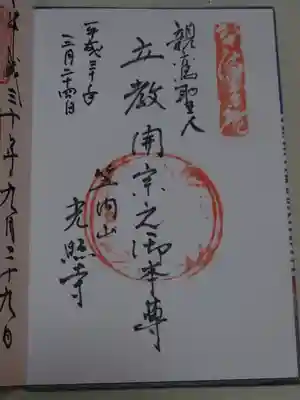 親鸞聖人
立教開宗之御本尊
笠内山
光照寺
平成三十年
三月二十四日
平成三十年九月二十九日